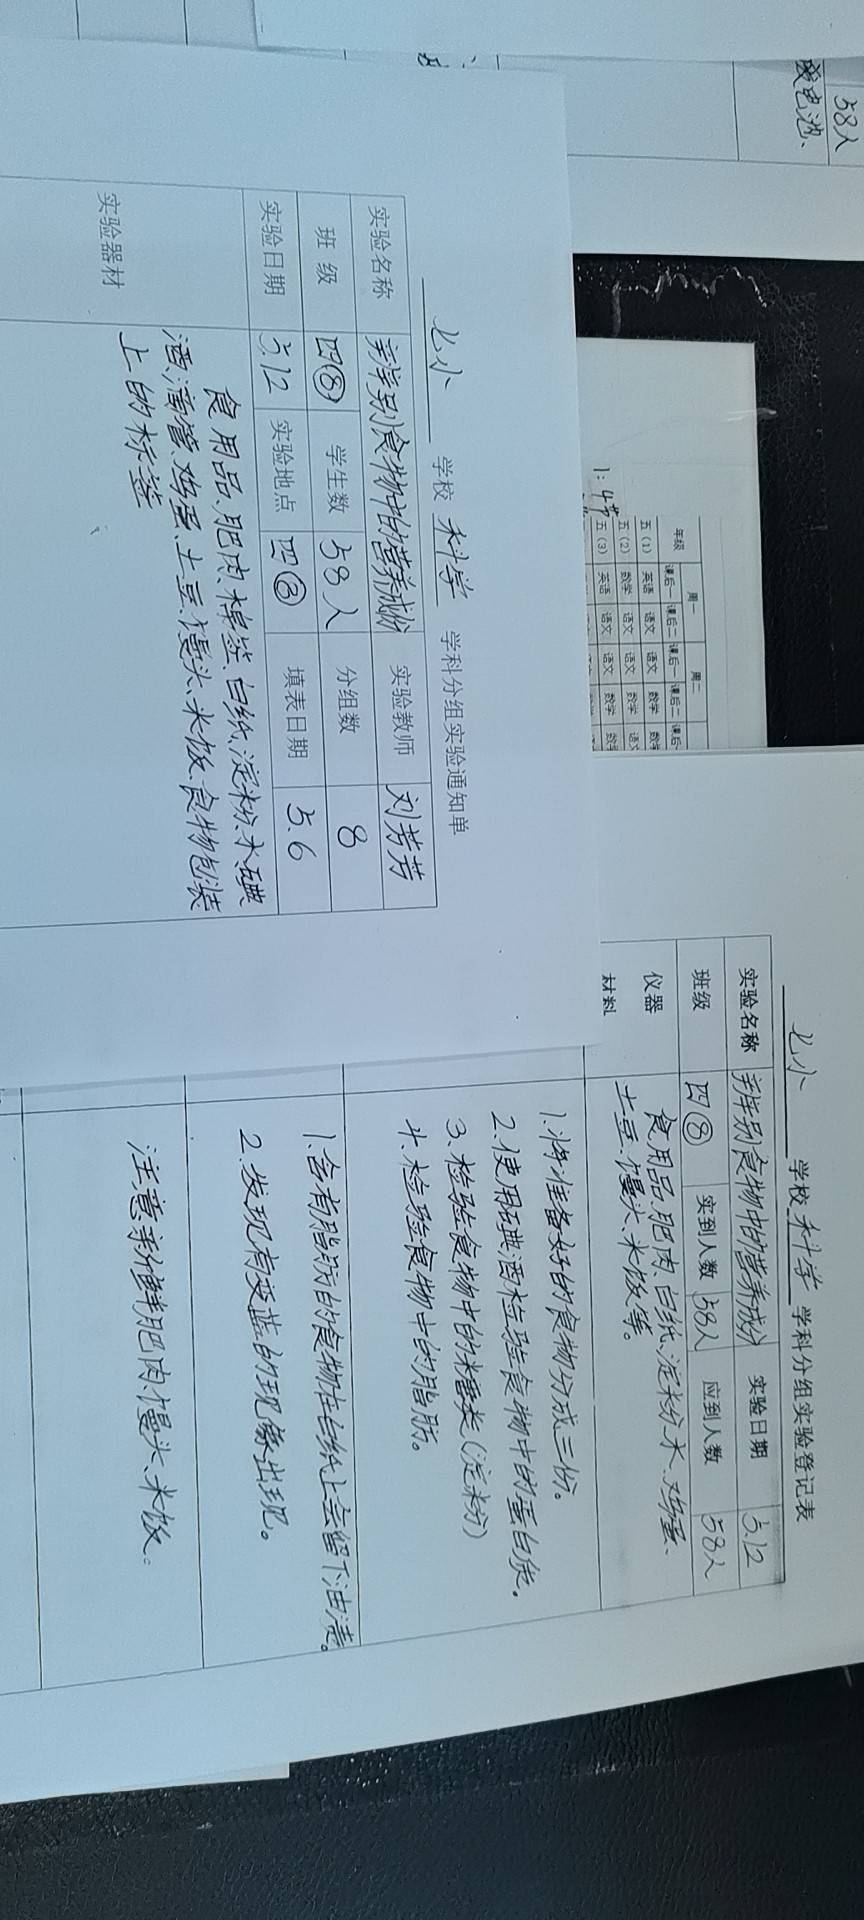 58人
酸电池、
年级 周一 周二
课后一 课后二 课后一 课后二 课后
五（1） 英语 语文 语文 数学 数学
五（2） 数学 语文 语文 数学 语文
五（3） 英语 语文 语文 数学 数学
七小 学校 科学 学科分组实验通知单
实验名称 辨别食物中的营养成份 实验教师 刘芳芳
班 级 四⑧ 学生数 58人 分组数 8
实验日期 5.12 实验地点 四⑧ 填表日期 5.6
实验器材
食用品、肥肉、棉签、白纸、淀粉、水、碘
酒、滴管、鸡蛋、土豆、馒头、米饭、食物包装
上的标签
七小 学校 科学 学科分组实验登记表
实验名称 辨别食物中的营养成分 实验日期 5.12
班级 四⑧ 实到人数 58人 应到人数 58人
仪器
材料
食用品、肥肉、白纸、淀粉、水、鸡蛋、
土豆、馒头、米饭等。
1.将准备好的食物分成三份。
2.使用碘酒检验食物中的蛋白质。
3.检验食物中的米糖类（淀粉）
4.检验食物中的脂肪。
1.含有脂肪的食物在白纸上会留下油渍。
2.发现有变蓝的现象出现。
注意新鲜肥肉、馒头、米饭。